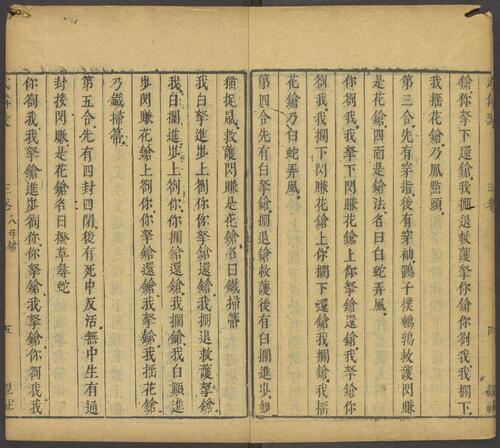 鎗你拏下還鎗我搠退救護拏你鎗你劄我我攔下
我搖花鎗乃鳳點頭
第三合先有穿指後有穿袖鷂子撲鵪鶉救護閃賺
是花鎗四面是鎗法名曰白蛇弄風
你劄我我拏下閃賺花鎗上你拏鎗還鎗我拏鎗你
劄我我攔下閃賺花鎗上你攔下還鎗我攔鎗我搖
花鎗乃白蛇弄風
第四合先有白拏鎗搠退鎗救護後有白攔進步如
猫捉鼠救護閃賺是花鎗名曰鐵掃箒
我白拏進步上劄你你拏鎗還鎗我搠退救護拏鎗
我白攔進步上劄你你攔鎗還鎗我攔鎗我白顛進
步閃賺花鎗上劄你你拏鎗還鎗我拏鎗我搖花鎗
乃鐵掃箒
第五合先有四封四閉後有死中反活無中生有迎
封接閃賺是花鎗名曰撥草尋蛇
你劄我我拏鎗進步劄你你拏鎗我拏鎗你劄我我
三卷 八母鎗 五